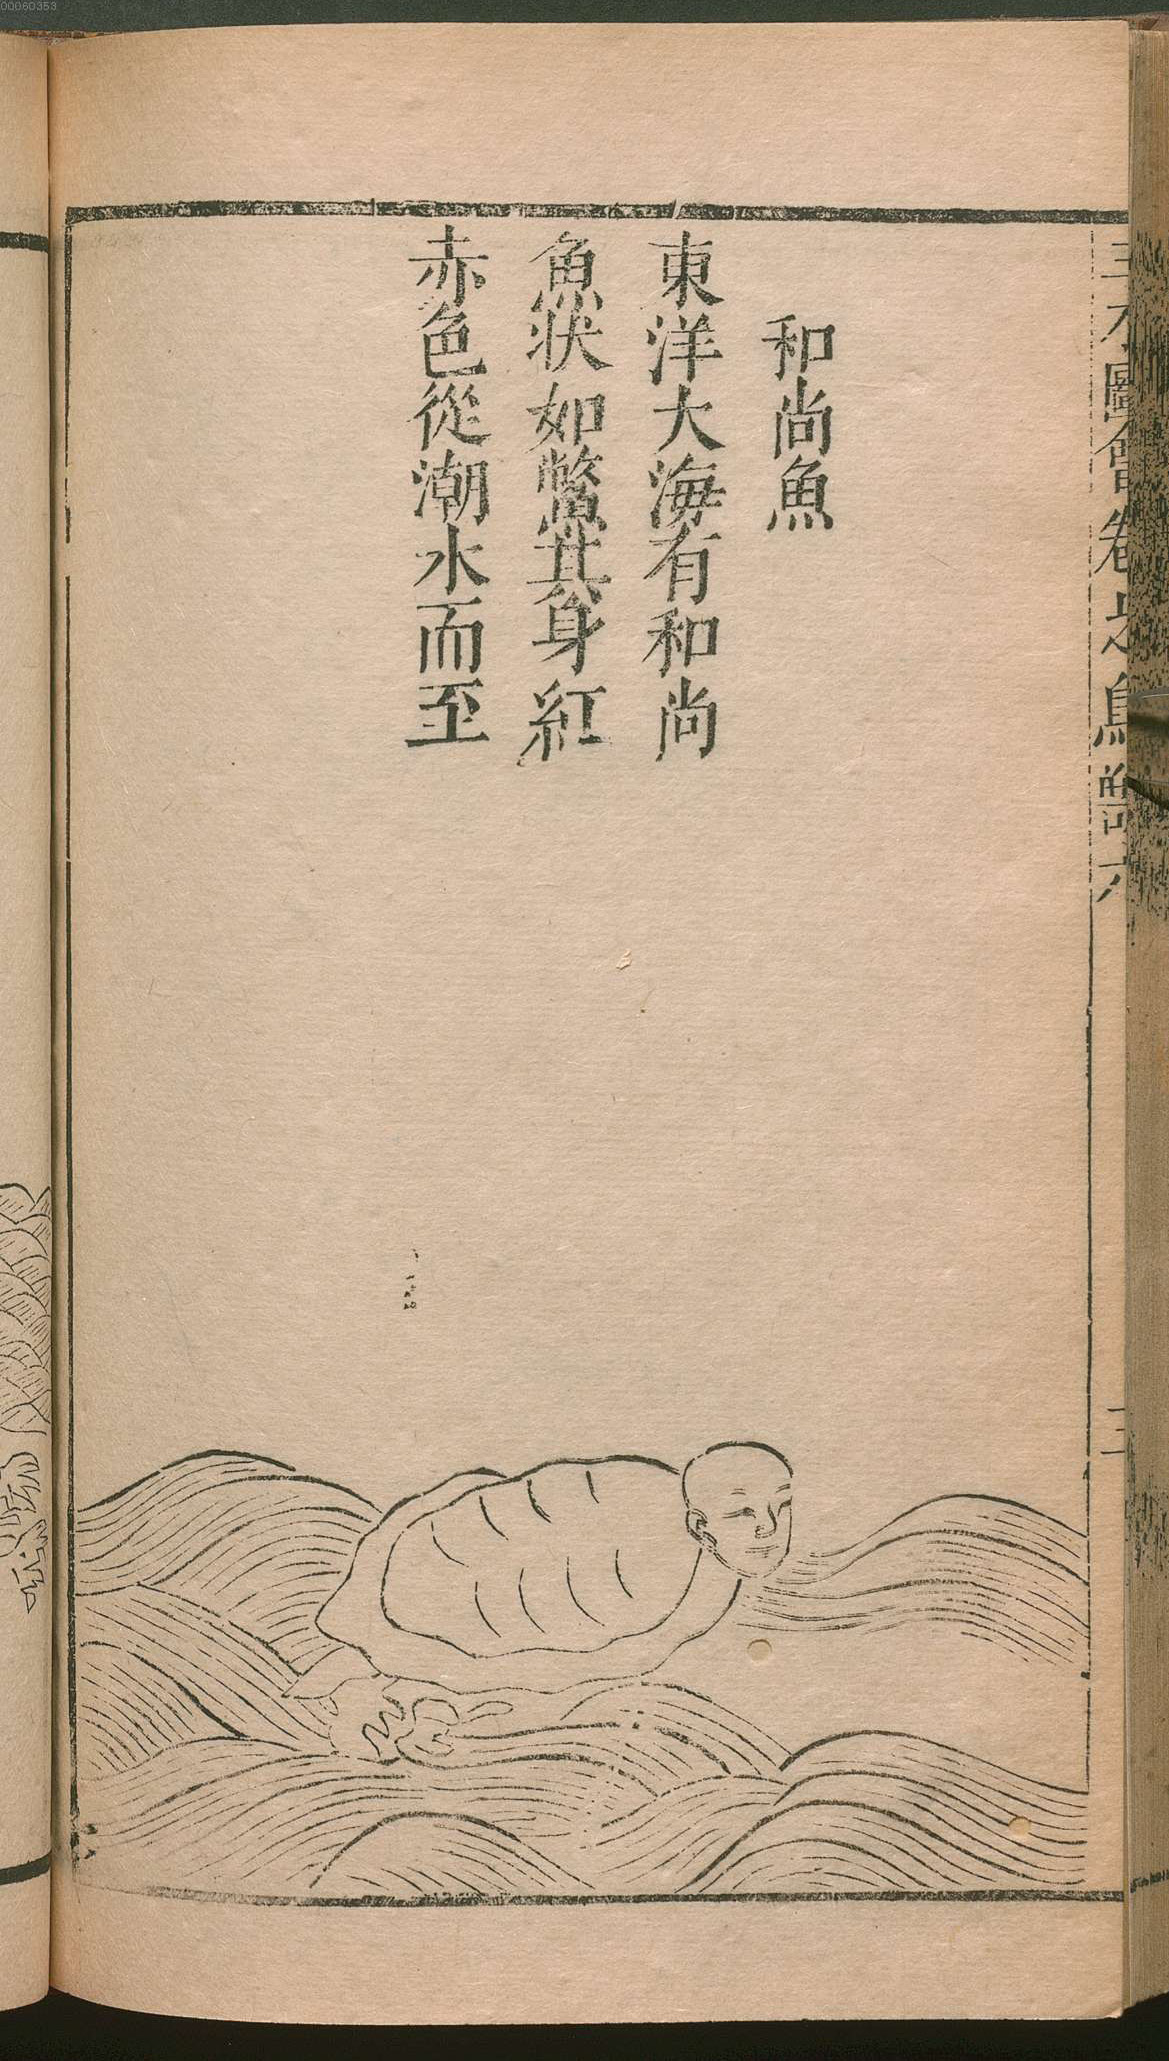 00060353
三才圖會卷之鳥獸六
和尚魚
東洋大海有和尚
魚狀如鱉其身紅
赤色從潮水而至